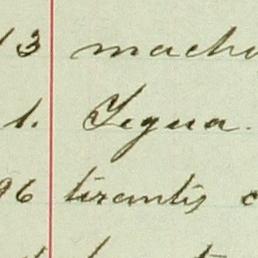 13 macho
1. Yegua.
96 tirantis